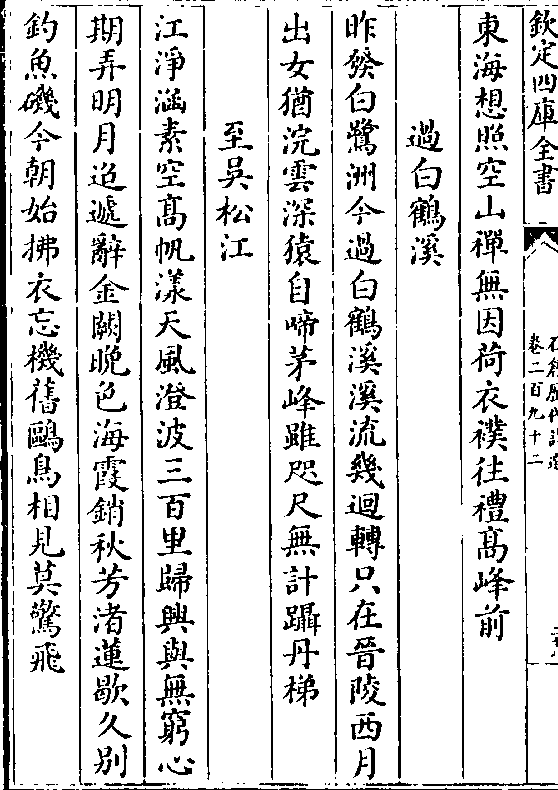 欽定四庫全書
卷二百九十二
東海想照空山禪無因荷衣襆往禮髙峰前
過白鶴溪
昨發白鷺洲今過白鶴溪溪流幾迴轉只在晉陵西月
出女猶浣雲深猿自啼茅峰雖咫尺無計躡丹梯
至吳松江
江淨涵素空髙帆漾天風澄波三百里歸興與無窮心
期弄明月迢遞辭金闕晚色海霞銷秋芳渚蓮歇久别
釣魚磯今朝始拂衣忘機舊鷗鳥相見莫驚飛